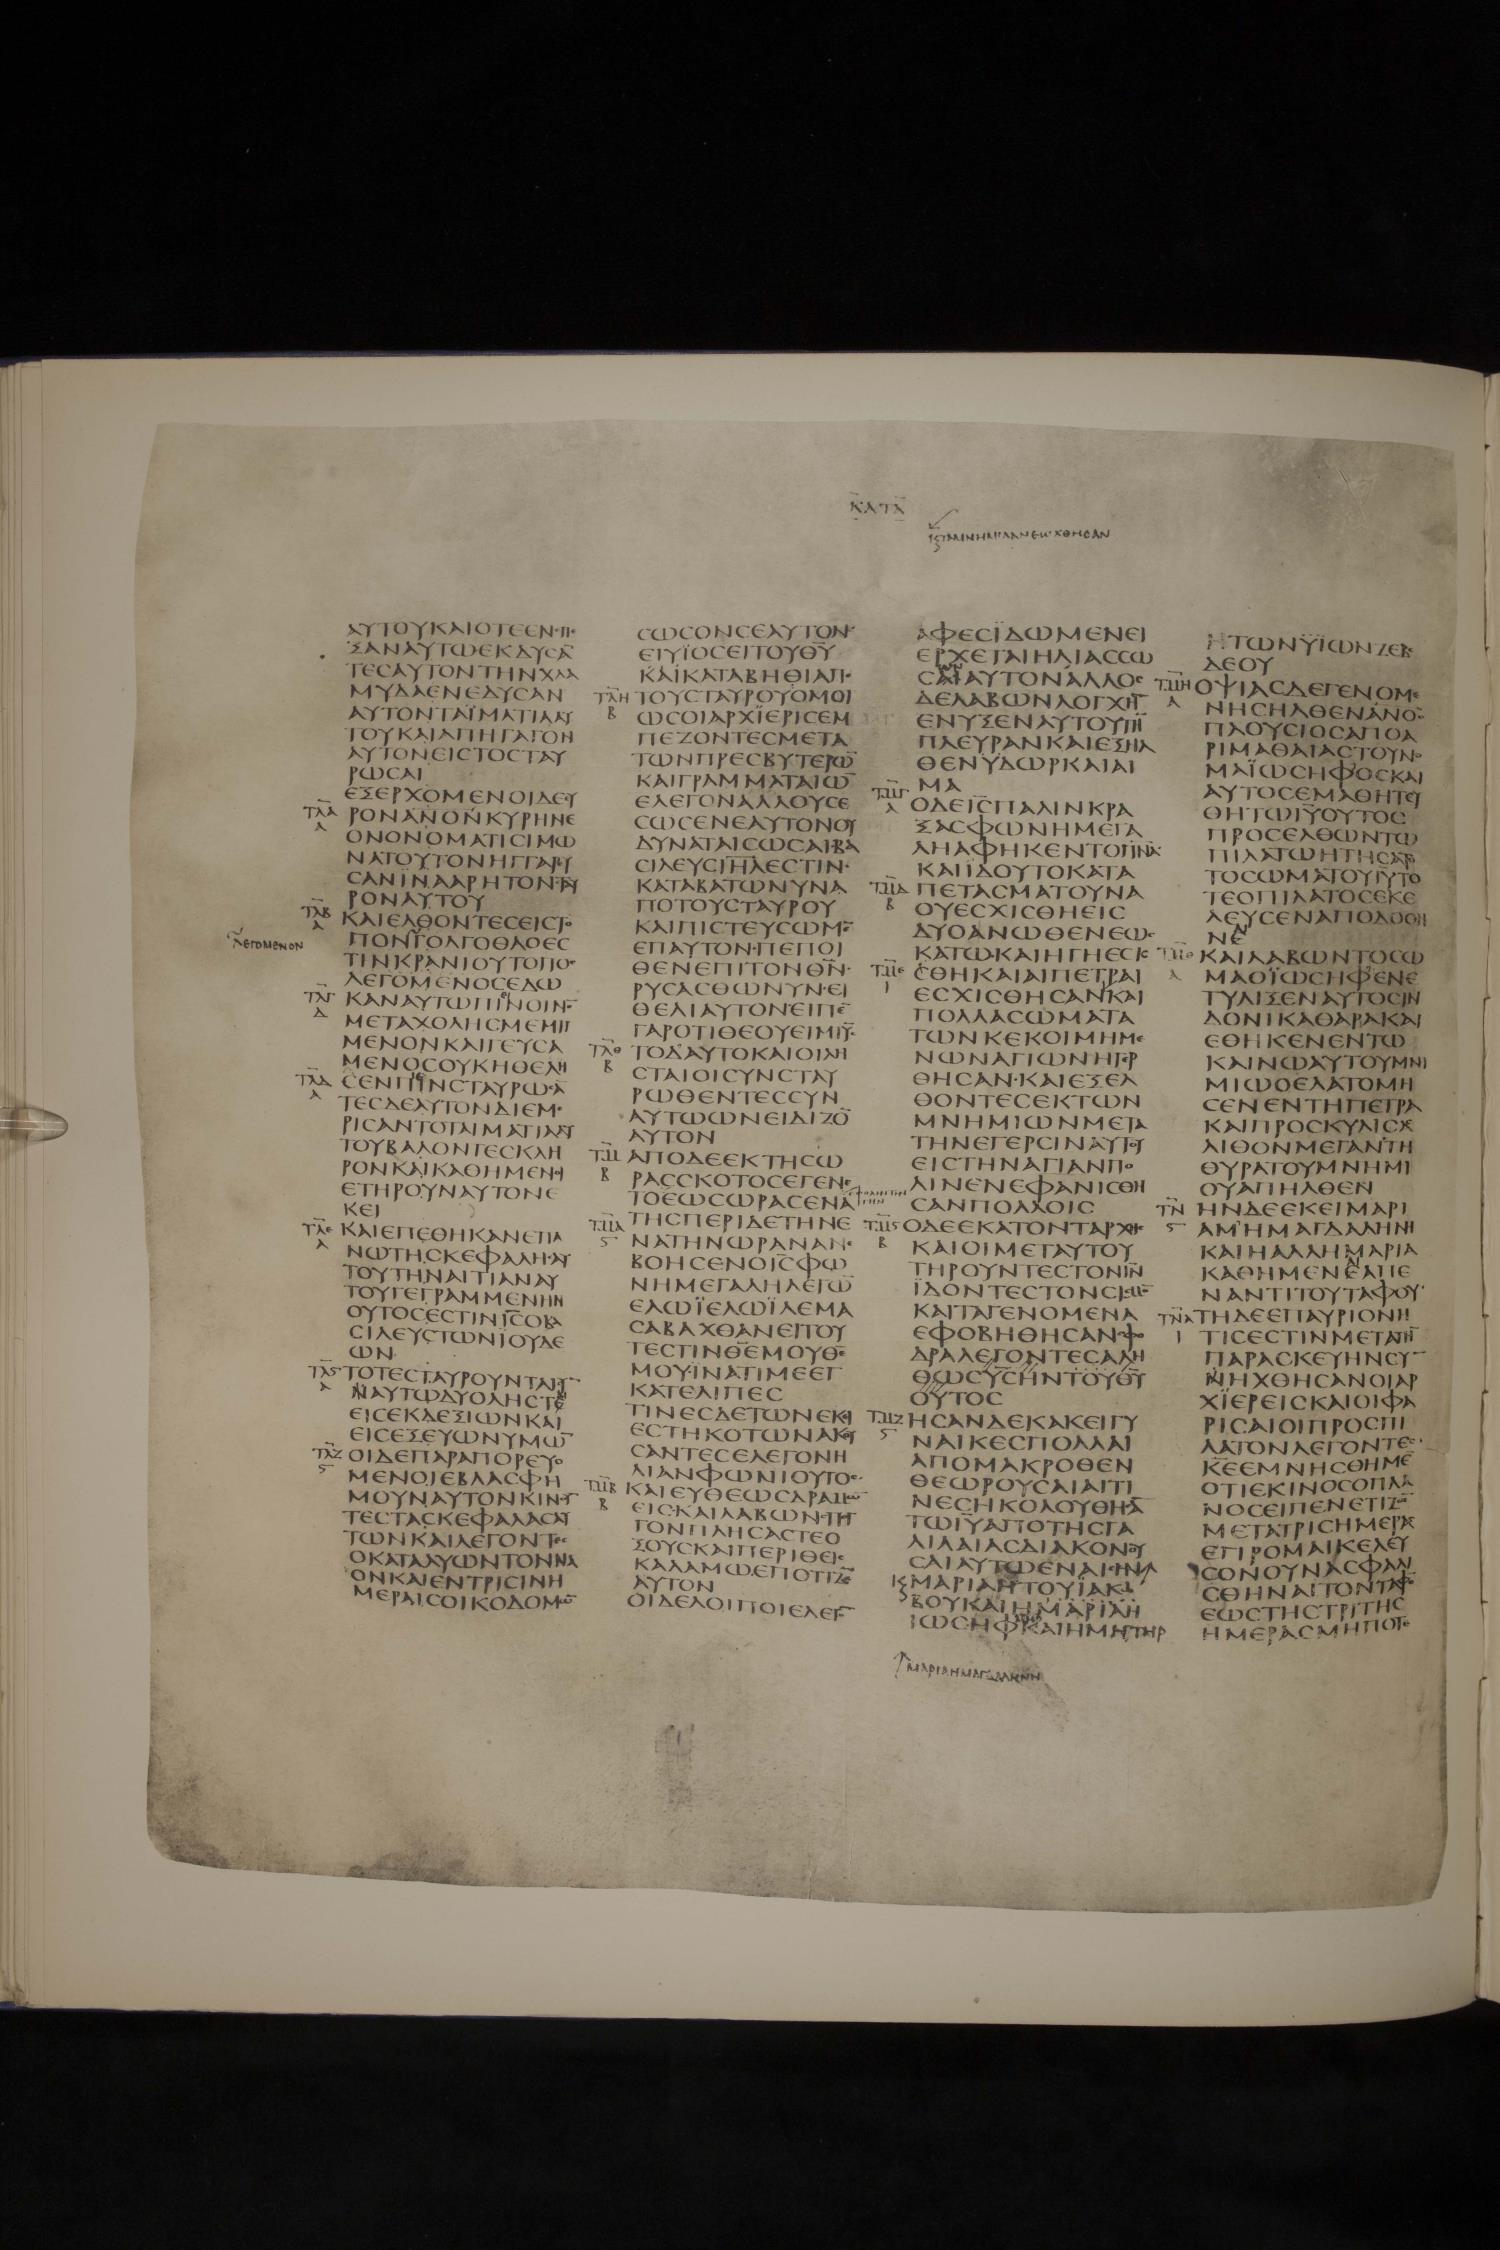 ΚΑΤΑ
ΑΥΤΟΥΚΑΙΟΤΕΕΝΕΠΕ
ΞΑΝΑΥΤΩΕΚΔΥΣΑ
ΤΕΣΑΥΤΟΝΤΗΝΧΛΑ
ΜΥΔΑΕΝΕΔΥΣΑΝ
ΑΥΤΟΝΤΑΪΜΑΤΙΑΑΥ
ΤΟΥΚΑΙΑΠΗΓΑΓΟΝ
ΑΥΤΟΝΕΙΣΤΟΣΤΑΥ
ΡΩΣΑΙ
ΕΞΕΡΧΟΜΕΝΟΙΔΕΥ
ΤΛΑ Α
ΡΟΝΑΝΟΝΚΥΡΗΝΕ
ΟΝΟΝΟΜΑΤΙΣΙΜΩ
ΝΑΤΟΥΤΟΝΗΓΓΑΡΕΥ
ΣΑΝΪΝΑΑΡΗΤΟΝΣΤΑΥ
ΡΟΝΑΥΤΟΥ
ΤΛΒ Α
ΚΑΙΕΛΘΟΝΤΕΣΕΙΣΤΟ
ΛΕΓΟΜΕΝΟΝ
ΠΟΝΓΟΛΓΟΘΑΟΕΣ
ΤΙΝΚΡΑΝΙΟΥΤΟΠΟΣ
ΛΕΓΟΜΕΝΟΣΕΔΩ
ΤΛΓ Δ
ΚΑΝΑΥΤΩΠΙΝΟΙΝΟ
ΜΕΤΑΧΟΛΗΣΜΕΜΙΓ
ΜΕΝΟΝΚΑΙΓΕΥΣΑ
ΜΕΝΟΣΟΥΚΗΘΕΛΗ
ΤΛΔ Α
ΣΕΝΠΙΝΣΤΑΥΡΩΣΑ
ΤΕΣΔΕΑΥΤΟΝΔΙΕΜΕ
ΡΙΣΑΝΤΟΤΑΙΜΑΤΙΑΑΥ
ΤΟΥΒΑΛΟΝΤΕΣΚΛΗ
ΡΟΝΚΑΙΚΑΘΗΜΕΝΟΙ
ΕΤΗΡΟΥΝΑΥΤΟΝΕ
ΚΕΙ
ΤΛΕ Α
ΚΑΙΕΠΕΘΗΚΑΝΕΠΑ
ΝΩΤΗΣΚΕΦΑΛΗΣΑΥ
ΤΟΥΤΗΝΑΙΤΙΑΝΑΥ
ΤΟΥΓΕΓΡΑΜΜΕΝΗΝ
ΟΥΤΟΣΕΣΤΙΝΙΣΟΒΑ
ΣΙΛΕΥΣΤΩΝΙΟΥΔΕ
ΩΝ
ΤΛϚ Α
ΤΟΤΕΣΤΑΥΡΟΥΝΤΑΙΣΥ
ΝΑΥΤΩΔΥΟΛΗΣΤΕ
ΕΙΣΕΚΔΕΞΙΩΝΚΑΙ
ΕΙΣΕΞΕΥΩΝΥΜΩ
ΤΛΖ Ϛ
ΟΙΔΕΠΑΡΑΠΟΡΕΥΟ
ΜΕΝΟΙΕΒΛΑΣΦΗ
ΜΟΥΝΑΥΤΟΝΚΙΝΟΥ
ΤΕΣΤΑΣΚΕΦΑΛΑΣΑΥ
ΤΩΝΚΑΙΛΕΓΟΝΤΕΣ
ΟΚΑΤΑΛΥΩΝΤΟΝΝΑ
ΟΝΚΑΙΕΝΤΡΙΣΙΝΗ
ΜΕΡΑΙΣΟΙΚΟΔΟΜΩ
ΣΩΣΟΝΣΕΑΥΤΟΝ
ΕΙΥΪΟΣΕΙΤΟΥΘΥ
ΚΑΙΚΑΤΑΒΗΘΙΑΠΟ
ΤΛΗ Β
ΤΟΥΣΤΑΥΡΟΥΟΜΟΙ
ΩΣΟΙΑΡΧΪΕΡΙΣΕΜ
ΠΕΖΟΝΤΕΣΜΕΤΑ
ΤΩΝΠΡΕΣΒΥΤΕΡΩ
ΚΑΙΓΡΑΜΜΑΤΑΙΩ
ΕΛΕΓΟΝΑΛΛΟΥΣΕ
ΣΩΣΕΝΕΑΥΤΟΝΟΥ
ΔΥΝΑΤΑΙΣΩΣΑΙΒΑ
ΣΙΛΕΥΣΙΗΛΕΣΤΙΝ
ΚΑΤΑΒΑΤΩΝΥΝΑ
ΠΟΤΟΥΣΤΑΥΡΟΥ
ΚΑΙΠΙΣΤΕΥΣΩΜΕ
ΕΠΑΥΤΟΝΠΕΠΟΙ
ΘΕΝΕΠΙΤΟΝΘΝ
ΡΥΣΑΣΘΩΝΥΝΕΙ
ΘΕΛΙΑΥΤΟΝΕΙΠΕ
ΓΑΡΟΤΙΘΕΟΥΕΙΜΙΥΣ
ΤΛΘ Β
ΤΟΔΑΥΤΟΚΑΙΟΙΛΗ
ΣΤΑΙΟΙΣΥΝΣΤΑΥ
ΡΩΘΕΝΤΕΣΣΥΝ
ΑΥΤΩΩΝΕΙΔΙΖΟ
ΑΥΤΟΝ
ΤΜ Β
ΑΠΟΔΕΕΚΤΗΣΩ
ΡΑΣΣΚΟΤΟΣΕΓΕΝΕ
ΤΟΕΩΣΩΡΑΣΕΝΑ
ΤΜΑ Ϛ
ΤΗΣΠΕΡΙΔΕΤΗΝΕ
ΝΑΤΗΝΩΡΑΝΑΝΕ
ΒΟΗΣΕΝΟΙΣΦΩ
ΝΗΜΕΓΑΛΗΛΕΓΩ
ΕΛΩΪΕΛΩΪΛΕΜΑ
ΣΑΒΑΧΘΑΝΕΙΤΟΥ
ΤΕΣΤΙΝΘΕΜΟΥΘΕ
ΜΟΥΪΝΑΤΙΜΕΕΓ
ΚΑΤΕΛΙΠΕΣ
ΤΙΝΕΣΔΕΤΩΝΕΚΙ
ΕΣΤΗΚΟΤΩΝΑΚΟΥ
ΣΑΝΤΕΣΕΛΕΓΟΝΗ
ΛΙΑΝΦΩΝΙΟΥΤΟΣ
ΤΜΒ Β
ΚΑΙΕΥΘΕΩΣΔΡΑΜΩ
ΕΙΣΚΑΙΛΑΒΩΝΤΗ
ΓΟΝΠΛΗΣΑΣΤΕΟ
ΞΟΥΣΚΑΙΠΕΡΙΘΕΙΣ
ΚΑΛΑΜΩΕΠΟΤΙΖΕ
ΑΥΤΟΝ
ΟΙΔΕΛΟΙΠΟΙΕΛΕΓΟ
ΑΦΕΣΪΔΩΜΕΝΕΙ
ΕΡΧΕΤΑΙΗΛΙΑΣΣΩ
ΣΑΙΑΥΤΟΝΑΛΛΟΣ
ΔΕΛΑΒΩΝΛΟΓΧΗ
ΕΝΥΞΕΝΑΥΤΟΥΤΗ
ΠΛΕΥΡΑΝΚΑΙΕΞΗΛ
ΘΕΝΫΔΩΡΚΑΙΑΙ
ΜΑ
ΤΜΓ Α
ΟΔΕΙΣΠΑΛΙΝΚΡΑ
ΞΑΣΦΩΝΗΜΕΓΑ
ΛΗΑΦΗΚΕΝΤΟΠΝΑ
ΚΑΙΪΔΟΥΤΟΚΑΤΑ
ΤΜΔ Β
ΠΕΤΑΣΜΑΤΟΥΝΑ
ΟΥΕΣΧΙΣΘΗΕΙΣ
ΔΥΟΑΝΩΘΕΝΕΩΣ
ΚΑΤΩΚΑΙΗΓΗΕΣΙ
ΤΜΕ Ι
ΣΘΗΚΑΙΑΙΠΕΤΡΑΙ
ΕΣΧΙΣΘΗΣΑΝΚΑΙ
ΙΣΤΑΜΝΗΜΙΑΑΝΕΩΧΘΗΣΑΝ
ΠΟΛΛΑΣΩΜΑΤΑ
ΤΩΝΚΕΚΟΙΜΗΜΕ
ΝΩΝΑΓΙΩΝΗΓΕΡ
ΘΗΣΑΝΚΑΙΕΞΕΛ
ΘΟΝΤΕΣΕΚΤΩΝ
ΜΝΗΜΙΩΝΜΕΤΑ
ΤΗΝΕΓΕΡΣΙΝΑΥΤΟΥ
ΕΙΣΤΗΝΑΓΙΑΝΠΟ
ΛΙΝΕΝΕΦΑΝΙΣΘΗ
ΣΑΝΠΟΛΛΟΙΣ
ΤΜϚ Β
ΟΔΕΕΚΑΤΟΝΤΑΡΧΗΣ
ΚΑΙΟΙΜΕΤΑΥΤΟΥ
ΤΗΡΟΥΝΤΕΣΤΟΝΙΝ
ΪΔΟΝΤΕΣΤΟΝΣΙΣΜΟ
ΚΑΙΤΑΓΕΝΟΜΕΝΑ
ΕΦΟΒΗΘΗΣΑΝΣΦΟ
ΔΡΑΛΕΓΟΝΤΕΣΑΛΗ
ΘΩΣΥΣΗΝΤΟΥΘΥ
ΟΥΤΟΣ
ΤΜΖ Ϛ
ΗΣΑΝΔΕΚΑΚΕΙΓΥ
ΝΑΙΚΕΣΠΟΛΛΑΙ
ΑΠΟΜΑΚΡΟΘΕΝ
ΘΕΩΡΟΥΣΑΙΑΙΤΙ
ΝΕΣΗΚΟΛΟΥΘΗΣΑ
ΤΩΙΥΑΠΟΤΗΣΓΑ
ΛΙΛΑΙΑΣΔΙΑΚΟΝΟΥ
ΣΑΙΑΥΤΩΕΝΑΙΣΗΝ
ΜΑΡΙΑΗΤΟΥΪΑΚΩ
ΒΟΥΚΑΙΗΜΑΡΙΑΗ
ΙΩΣΗΦΚΑΙΗΜΗΤΗΡ
ΜΑΡΙΑΗΜΑΓΔΑΛΗΝΗ
ΗΤΩΝΫΪΩΝΖΕΒΕ
ΔΕΟΥ
ΤΜΗ Α
ΟΨΙΑΣΔΕΓΕΝΟΜΕ
ΝΗΣΗΛΘΕΝΑΝΟΣ
ΠΛΟΥΣΙΟΣΑΠΟΑ
ΡΙΜΑΘΑΙΑΣΤΟΥΝΟ
ΜΑΪΩΣΗΦΟΣΚΑΙ
ΑΥΤΟΣΕΜΑΘΗΤΕΥ
ΘΗΤΩΙΥΟΥΤΟΣ
ΠΡΟΣΕΛΘΩΝΤΩ
ΠΙΛΑΤΩΗΤΗΣΑΤΟ
ΤΟΣΩΜΑΤΟΥΙΥΤΟ
ΤΕΟΠΙΛΑΤΟΣΕΚΕ
ΛΕΥΣΕΝΑΠΟΔΟΘΗ
ΝΕ
ΤΜΘ Α
ΚΑΙΛΑΒΩΝΤΟΣΩ
ΜΑΟΪΩΣΗΦΕΝΕ
ΤΥΛΙΞΕΝΑΥΤΟΣΙΝ
ΔΟΝΙΚΑΘΑΡΑΚΑΙ
ΕΘΗΚΕΝΕΝΤΩ
ΚΑΙΝΩΑΥΤΟΥΜΝΗ
ΜΙΩΟΕΛΑΤΟΜΗ
ΣΕΝΕΝΤΗΠΕΤΡΑ
ΚΑΙΠΡΟΣΚΥΛΙΣΑΣ
ΛΙΘΟΝΜΕΓΑΝΤΗ
ΘΥΡΑΤΟΥΜΝΗΜΙ
ΟΥΑΠΗΛΘΕΝ
ΤΝ Ϛ
ΗΝΔΕΕΚΕΙΜΑΡΙ
ΑΜΗΜΑΓΔΑΛΗΝΗ
ΚΑΙΗΑΛΛΗΜΑΡΙΑ
ΚΑΘΗΜΕΝΕΑΠΕ
ΝΑΝΤΙΤΟΥΤΑΦΟΥ
ΤΝΑ Ι
ΤΗΔΕΕΠΑΥΡΙΟΝΗ
ΤΙΣΕΣΤΙΝΜΕΤΑΤΗ
ΠΑΡΑΣΚΕΥΗΝΣΥ
ΝΗΧΘΗΣΑΝΟΙΑΡ
ΧΪΕΡΕΙΣΚΑΙΟΙΦΑ
ΡΙΣΑΙΟΙΠΡΟΣΠΙ
ΛΑΤΟΝΛΕΓΟΝΤΕΣ
ΚΕΕΜΝΗΣΘΗΜΕ
ΟΤΙΕΚΙΝΟΣΟΠΛΑ
ΝΟΣΕΙΠΕΝΕΤΙΖΩ
ΜΕΤΑΤΡΙΣΗΜΕΡΑΣ
ΕΓΙΡΟΜΑΙΚΕΛΕΥ
ΣΟΝΟΥΝΑΣΦΑΛΙ
ΣΘΗΝΑΙΤΟΝΤΑΦΟ
ΕΩΣΤΗΣΤΡΙΤΗΣ
ΗΜΕΡΑΣΜΗΠΟΤΕ